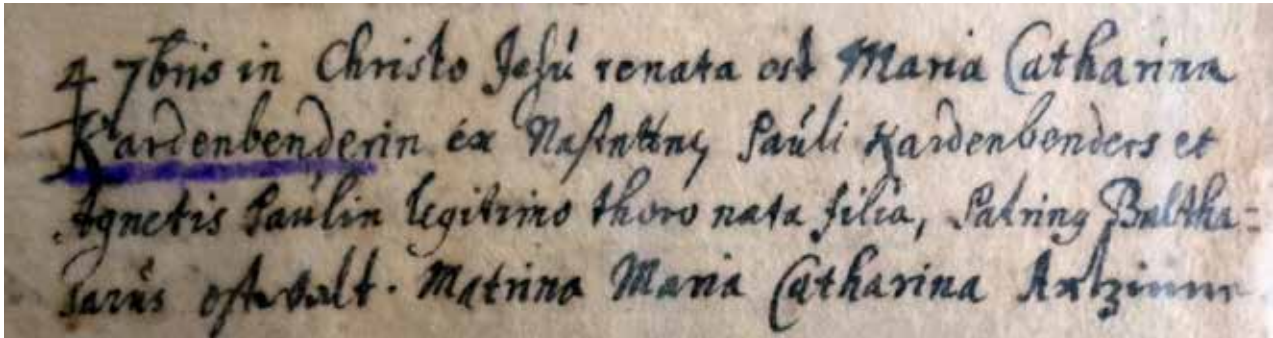 4 7bris in Christo Jesú renata est Maria Catharina
Kardenbenderin ex Paúli Kardenbenders et
Agnetis Paúlin legitimo thoro nata filia, Patrinꝯ Baltha=
sarús ostwalt. Matrina Maria Catharina